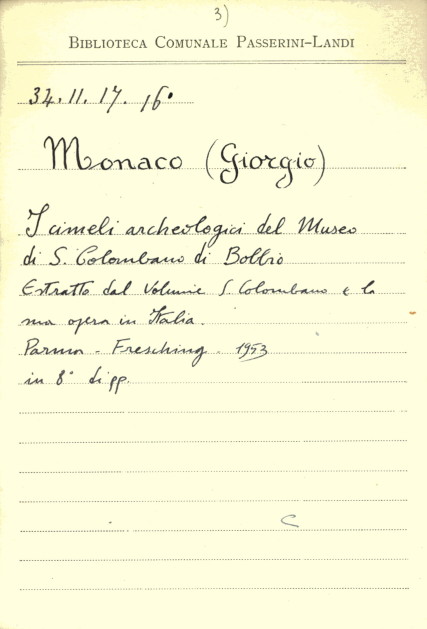 3)
BIBLIOTECA COMUNALE PASSERINI-LANDI
34.11.17.16.
Monaco (Giorgio)
I cimeli archeologici del Museo
di S. Colombano di Bobbio
Estratto dal Volume S. Colombano e la
sua opera in Italia.
Parma - Fresching. 1953
in 8° di pp.
C